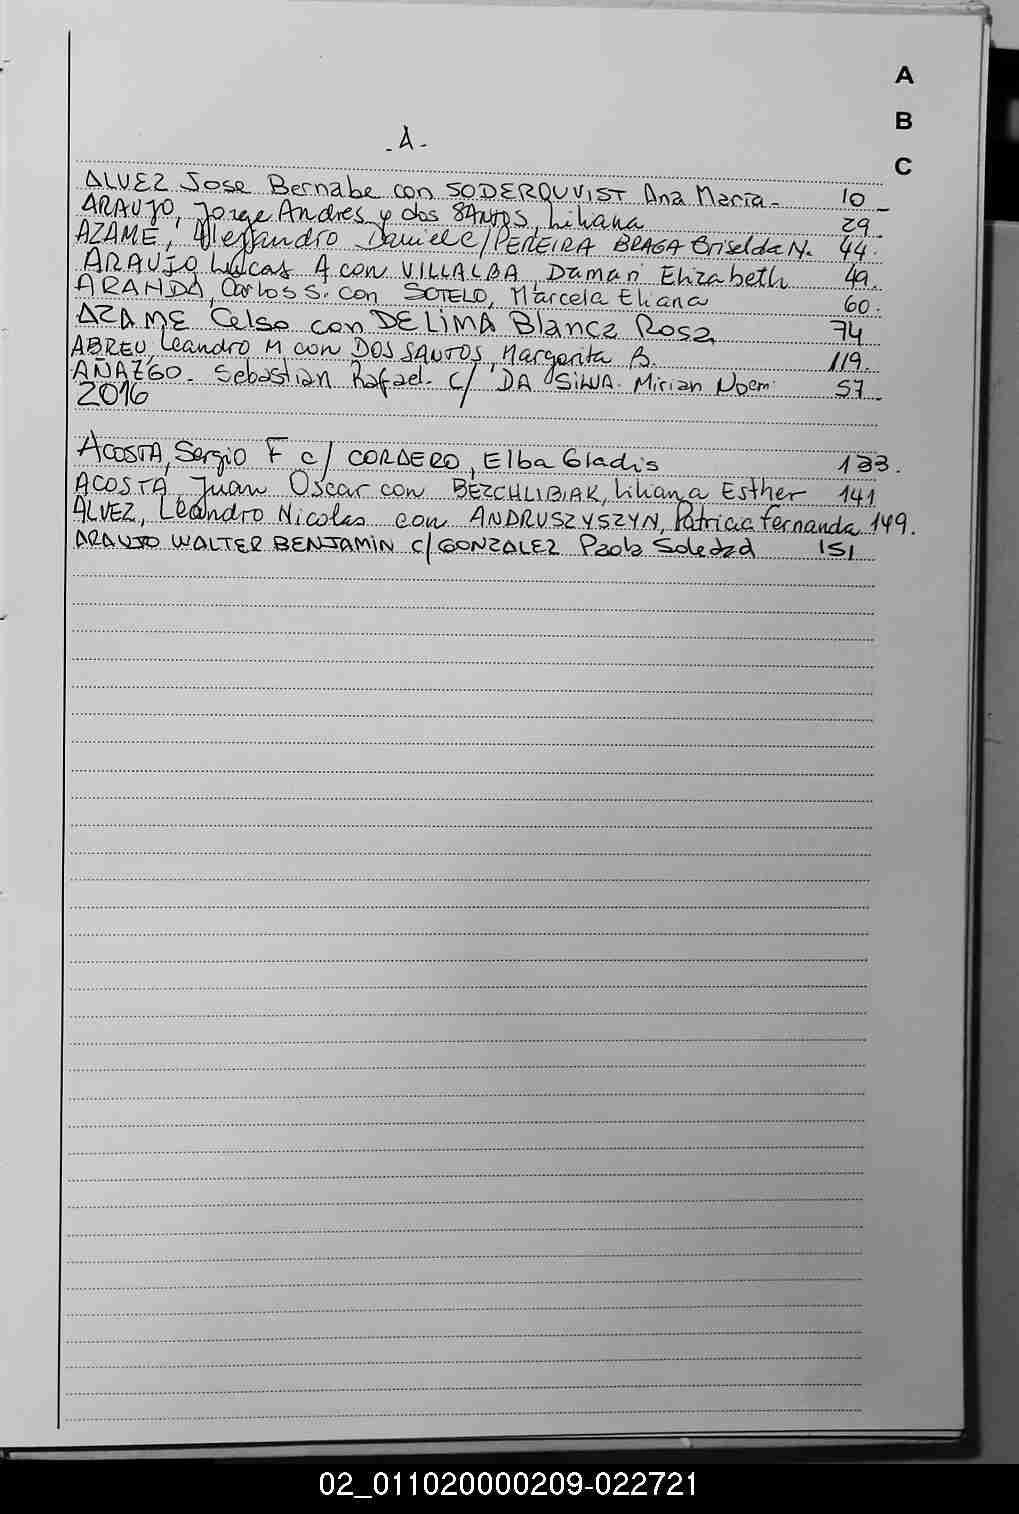 A
B
C
- A -
ALVEZ Jose Bernabe con SODERQUVIST Ana Maria - 10 -
ARAUJO, Jorge Andres y dos SANTOS, Liliana 29.
AZAME, Alejandro Daniel c/ PEREIRA BRAGA Griselda N. 44.
ARAUJO Lucas A con VILLALBA, Damari Elizabeth 49.
ARANDA, Carlos S. con SOTELO, Marcela Eliana 60.
AZAME Celso con DE LIMA Blanca Rosa 74
ABREU, Leandro M con DOS SANTOS, Margarita B. 119.
AÑAZGO. Sebastian Rafael. c/ DA SILVA. Mirian Noemi 57
2016
ACOSTA, Sergio F c/ CORDERO, Elba Gladis 133.
ACOSTA, Juan Oscar con BEZCHLIBIAK, Liliana Esther 141
ALVEZ, Leandro Nicolas con ANDRUSZYSZYN, Patricia Fernanda 149.
ARAUJO WALTER BENJAMIN c/ GONZALEZ Paola Soledad 151
02_011020000209-022721